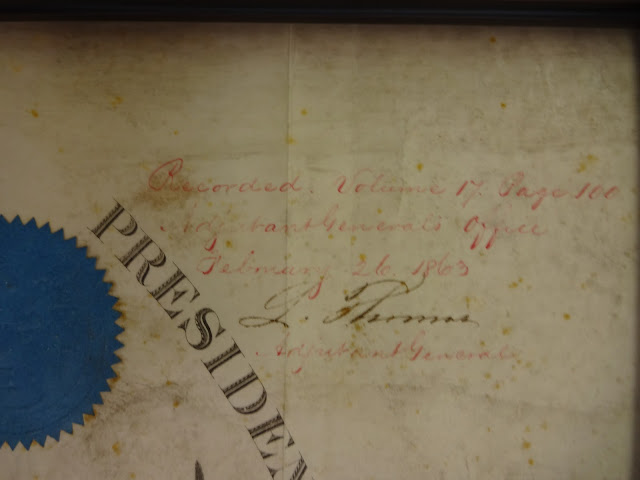 Recorded. Volume 17. Page 100
Adjutant Generals Office
February 26. 1863
L. Thomas
Adjutant General
PRESIDEN